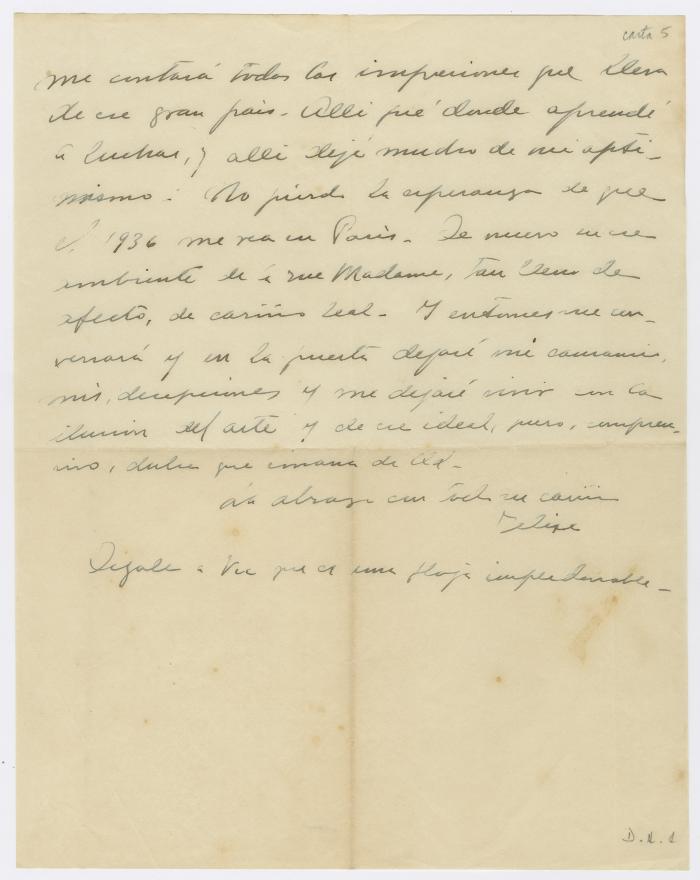 carta 5
me contará todas las impresiones que lleva
de ese gran pais. Alli fué donde aprendé
a luchar, y alli dejé mucho de mi opti-
mismo. No pierdo la esperanza de que
el 1936 me vea en Paris. De nuevo en ese
ambiente de la rue Madame, tan lleno de
afecto, de cariño leal. Y entonces me con-
versará y en la puerta dejaré mi
mis, decepciones y me dejaré vivir en la
ilusion del arte y de ese ideal, puro, compren-
sivo, dulce que emana de Ud.
La abraza con todo su cariño
Felipe
Digale a que es una floja imperdonable.
D. A. 1